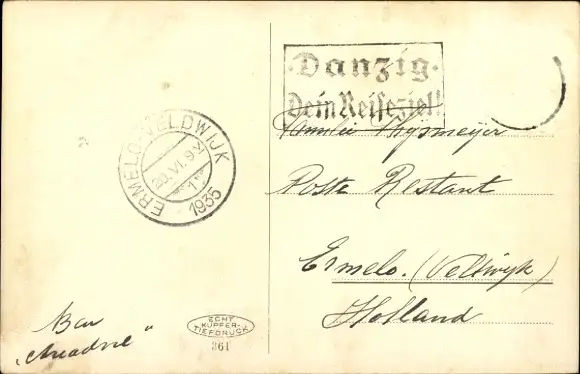 Danzig
Dein Reiseziel!
ERMELO-VELDWIJK
29.VI.9
1935
Familie
Poste Restant
Ermelo. (Veldwyk)
Holland
"Ariadne"
ECHT
KUPFER-
TIEFDRUCK
361